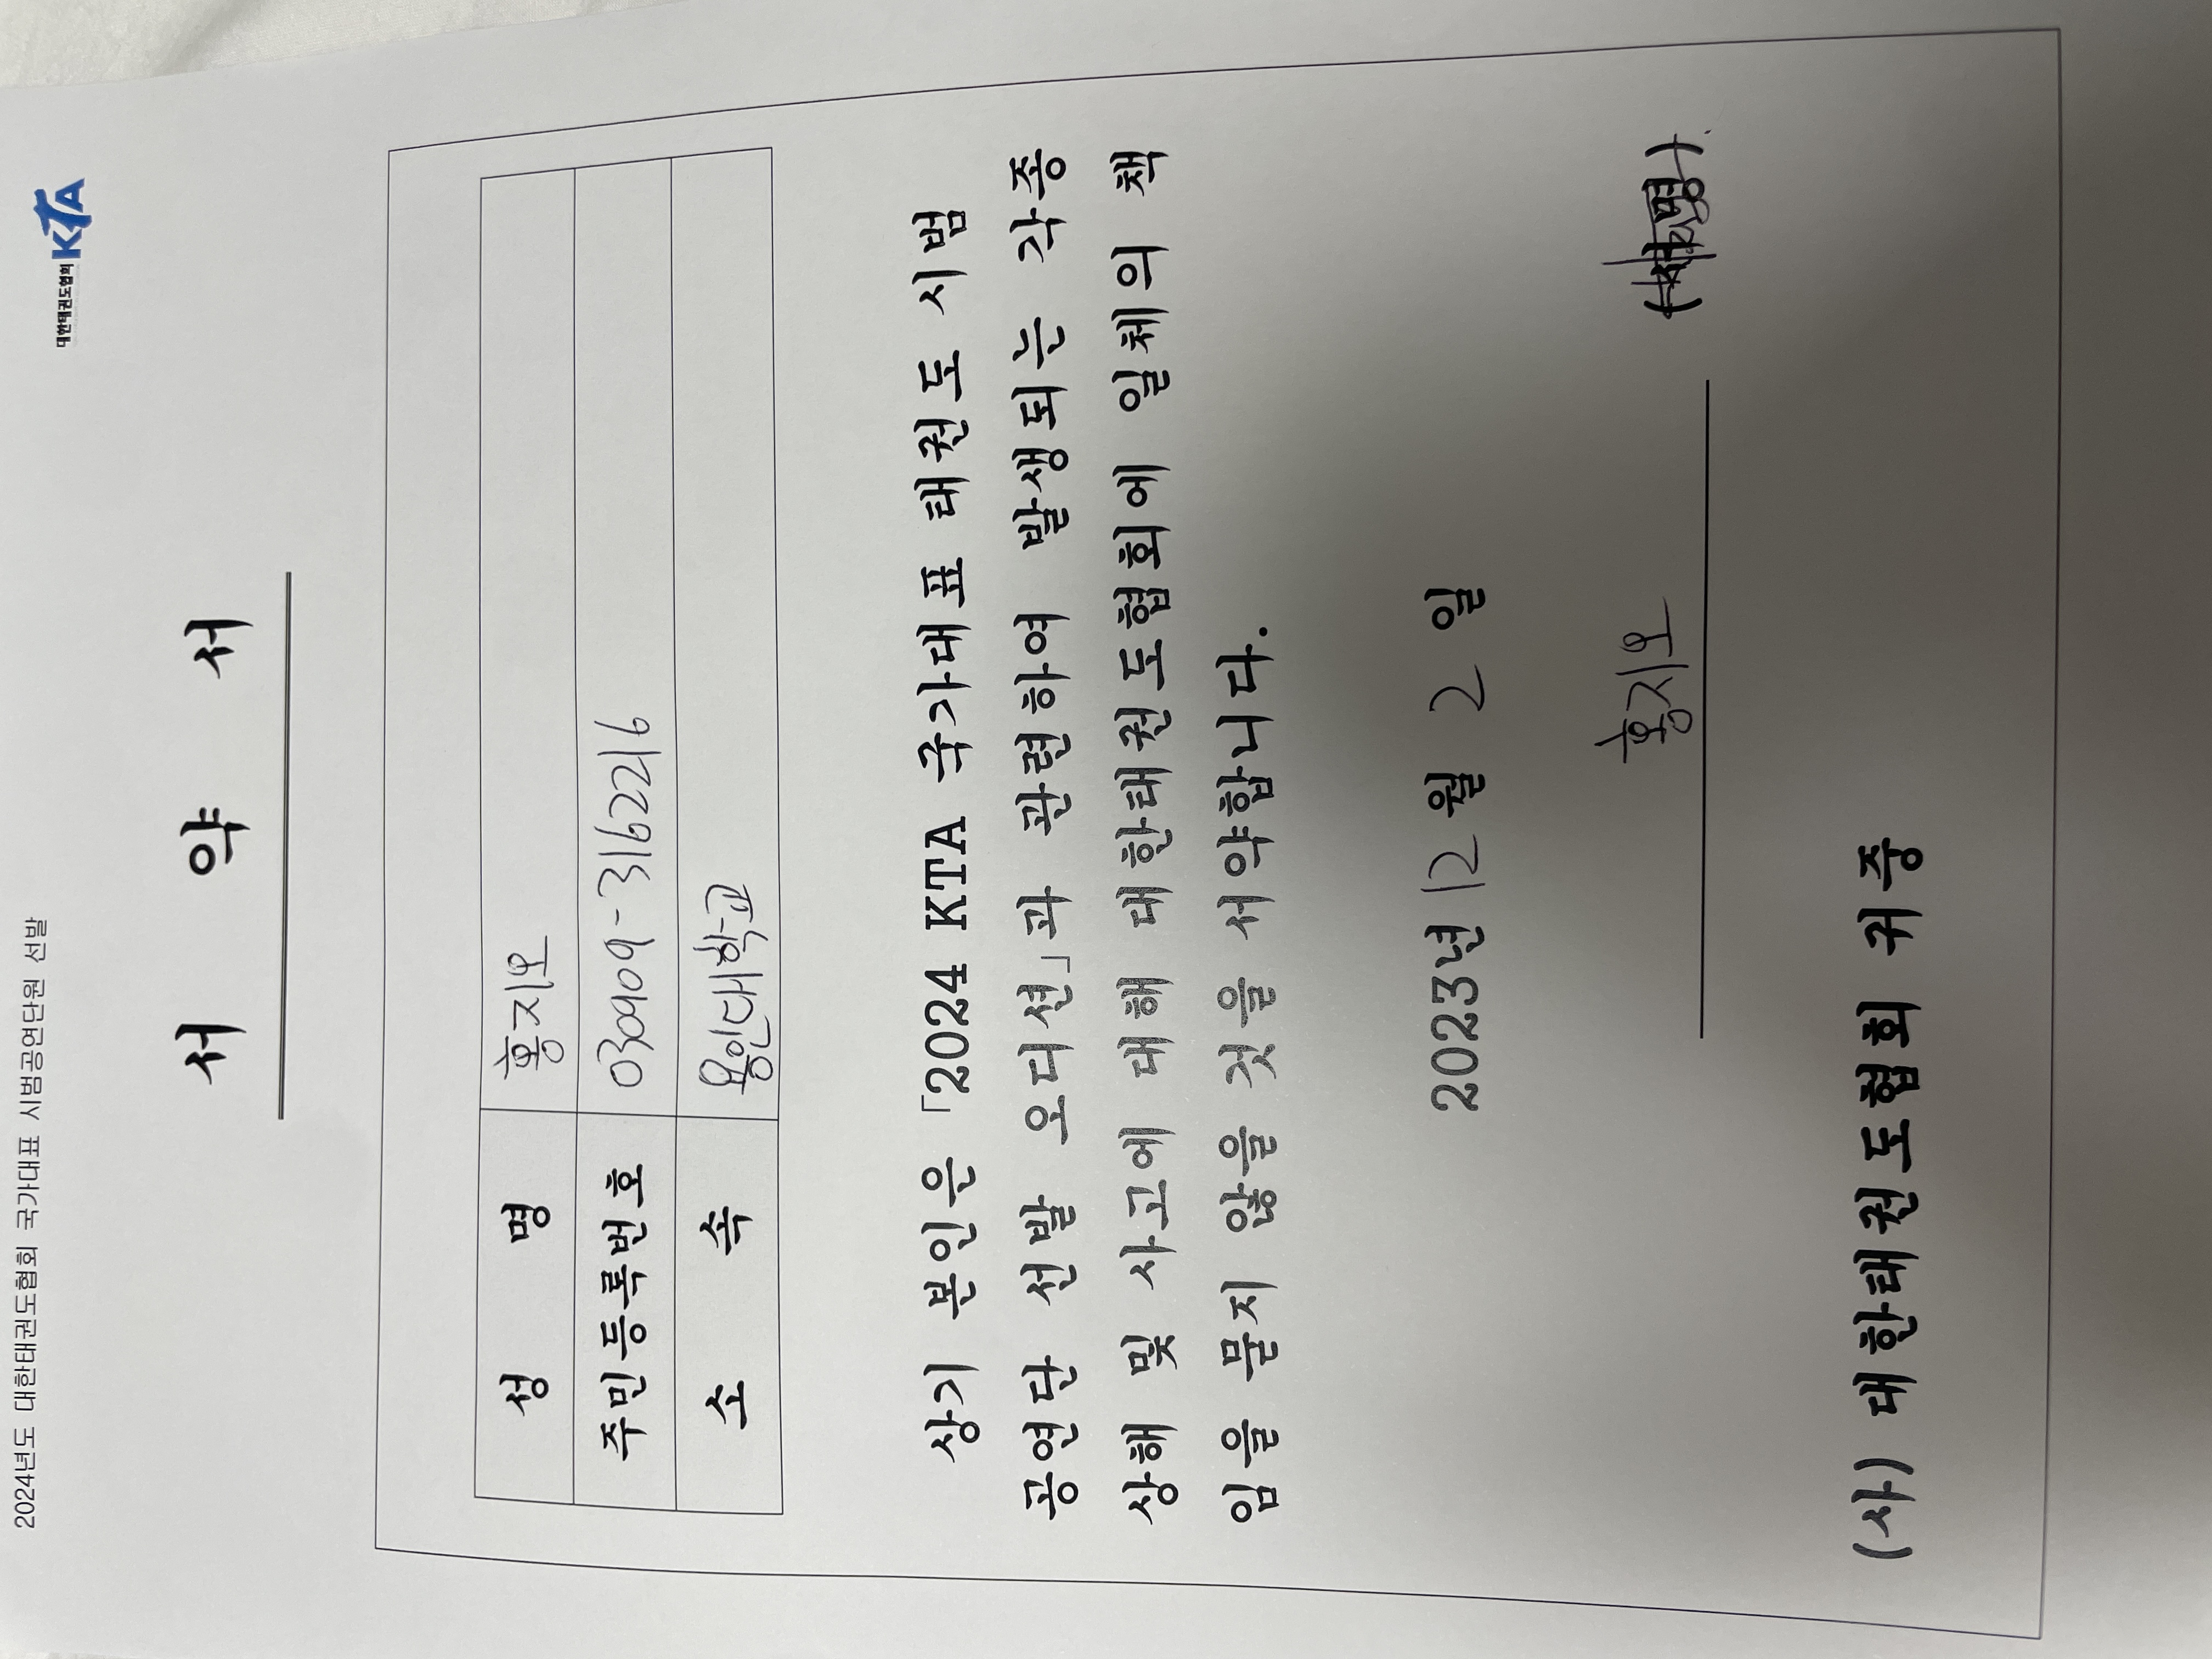 2024년도 대한태권도협회 국가대표 시범공연단원 선발
대한태권도협회 KTA
서 약 서
성 명 홍지오
주민등록번호 030909-3162216
소 속 용인대학교
상기 본인은 「2024 KTA 국가대표 태권도 시범
공연단 선발 오디션」과 관련하여 발생되는 각종
상해 및 사고에 대해 대한태권도협회에 일체의 책
임을 묻지 않을 것을 서약합니다.
2023년 12월 2일
홍지오 (서명)
(사) 대한태권도협회 귀중